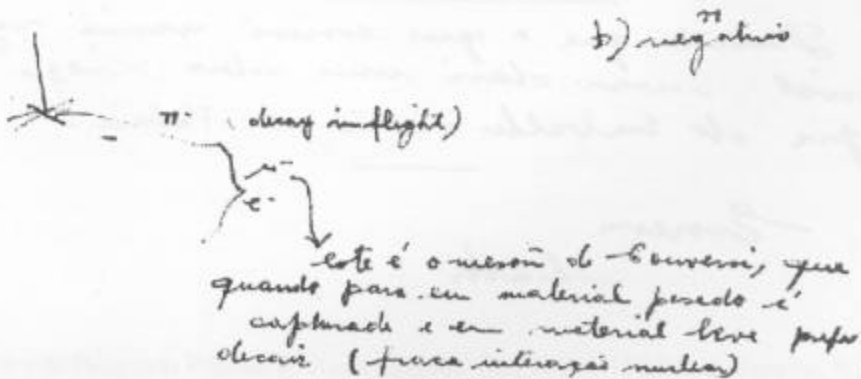 b) negativo
π
π
-
(decay in flight)
μ-
e-
este é o meson do Conversi, que
quando para em material pesado é
capturado e em material leve prefere
decair (fraca interação nuclear)